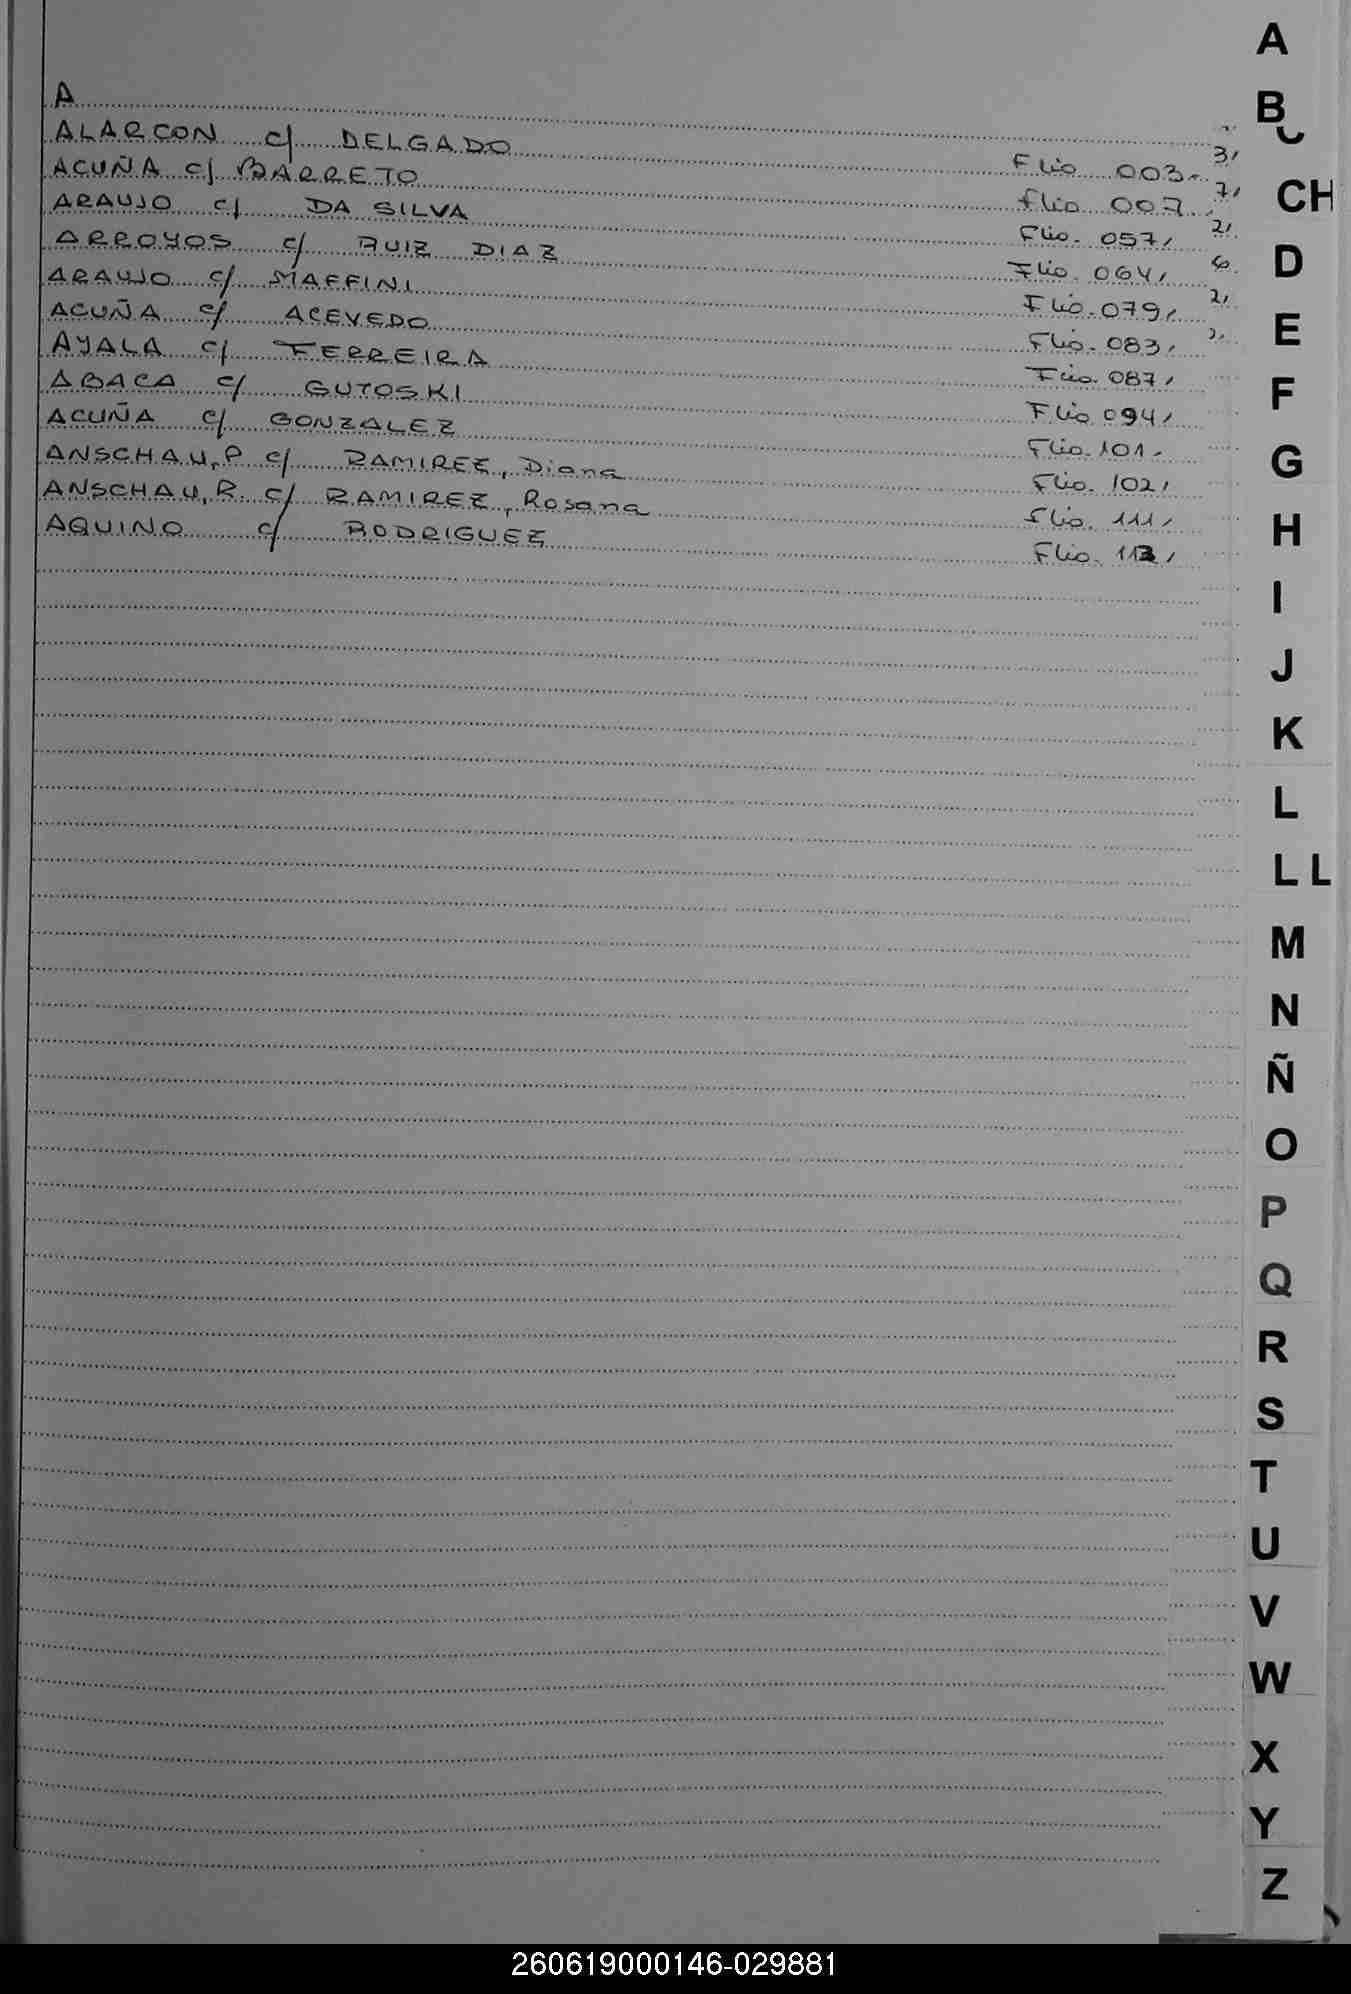 A
ALARCON c/ DELGADO Flio 003.-
ACUÑA c/ BARRETO Flio 007.
ARAUJO c/ DA SILVA Flio. 057,
ARROYOS c/ RUIZ DIAZ Flio. 064,
ARAUJO c/ MAFFINI Flio. 079,
ACUÑA c/ ACEVEDO Flio. 083,
AYALA c/ FERREIRA Flio. 087,
ABACA c/ GUTOSKI Flio 094,
ACUÑA c/ GONZALEZ Flio. 101.
ANSCHAU, P c/ RAMIREZ, Diana Flio. 102,
ANSCHAU, R. c/ RAMIREZ, Rosana Flio. 111,
AQUINO c/ RODRIGUEZ Flio.
A
B
CH
D
E
F
G
H
I
J
K
L
LL
M
N
Ñ
O
P
Q
R
S
T
U
V
W
X
Y
Z
260619000146-029881